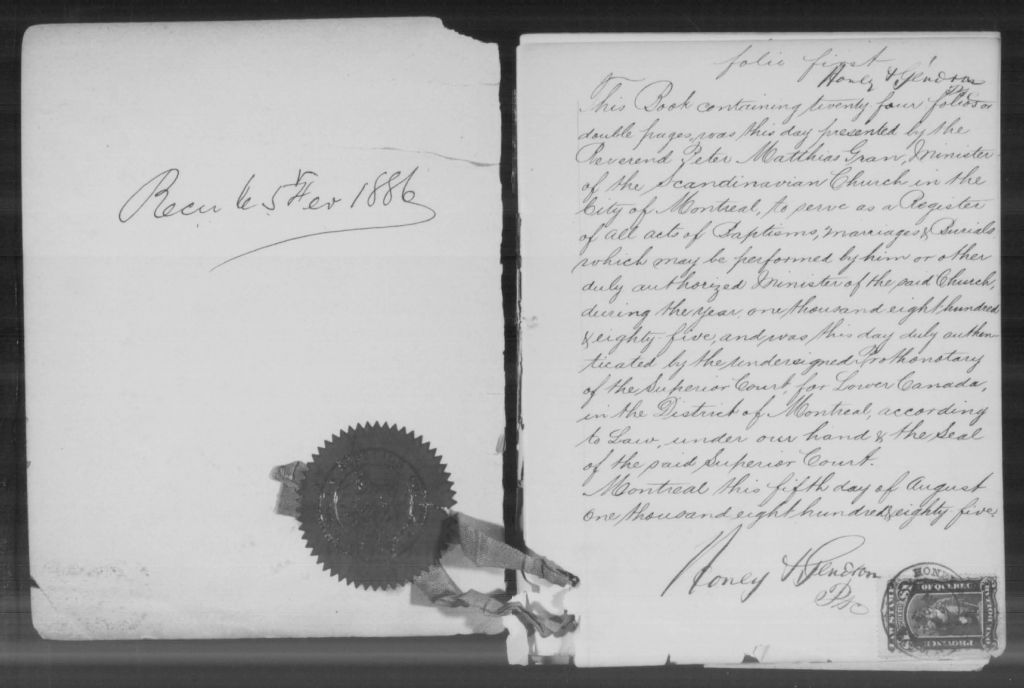 Recu le 5 Fev 1886
folio first
Honey & Gendron
P.S.C.
This Book containing twenty four folios or
double pages, was this day presented by the
Reverend Peter Matthias Gran, Minister
of the Scandinavian Church in the
City of Montreal, to serve as a Register
of all acts of Baptisms, Marriages & Burials
which may be performed by him or other
duly authorized Minister of the said Church,
during the year, one thousand eight hundred
& eighty five, and was this day duly authen
ticated by the undersigned Prothonotary
of the Superior Court, for Lower Canada,
in the District of Montreal, according
to Law, under our hand & the Seal
of the said Superior Court.
Montreal this fifth day of August
one thousand eight hundred & eighty five.
Honey & Gendron
P.S.C.
HONEY
OF QUEBEC
LAW STAMP
PROVINCE